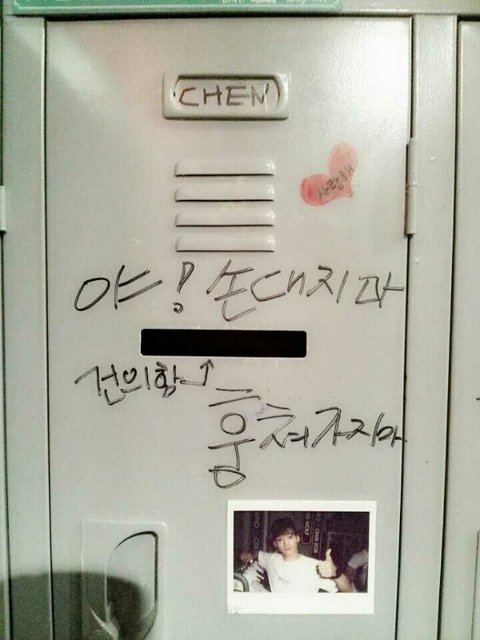 CHEN
사랑해
야! 손대지마
건의함→
훔쳐가지마